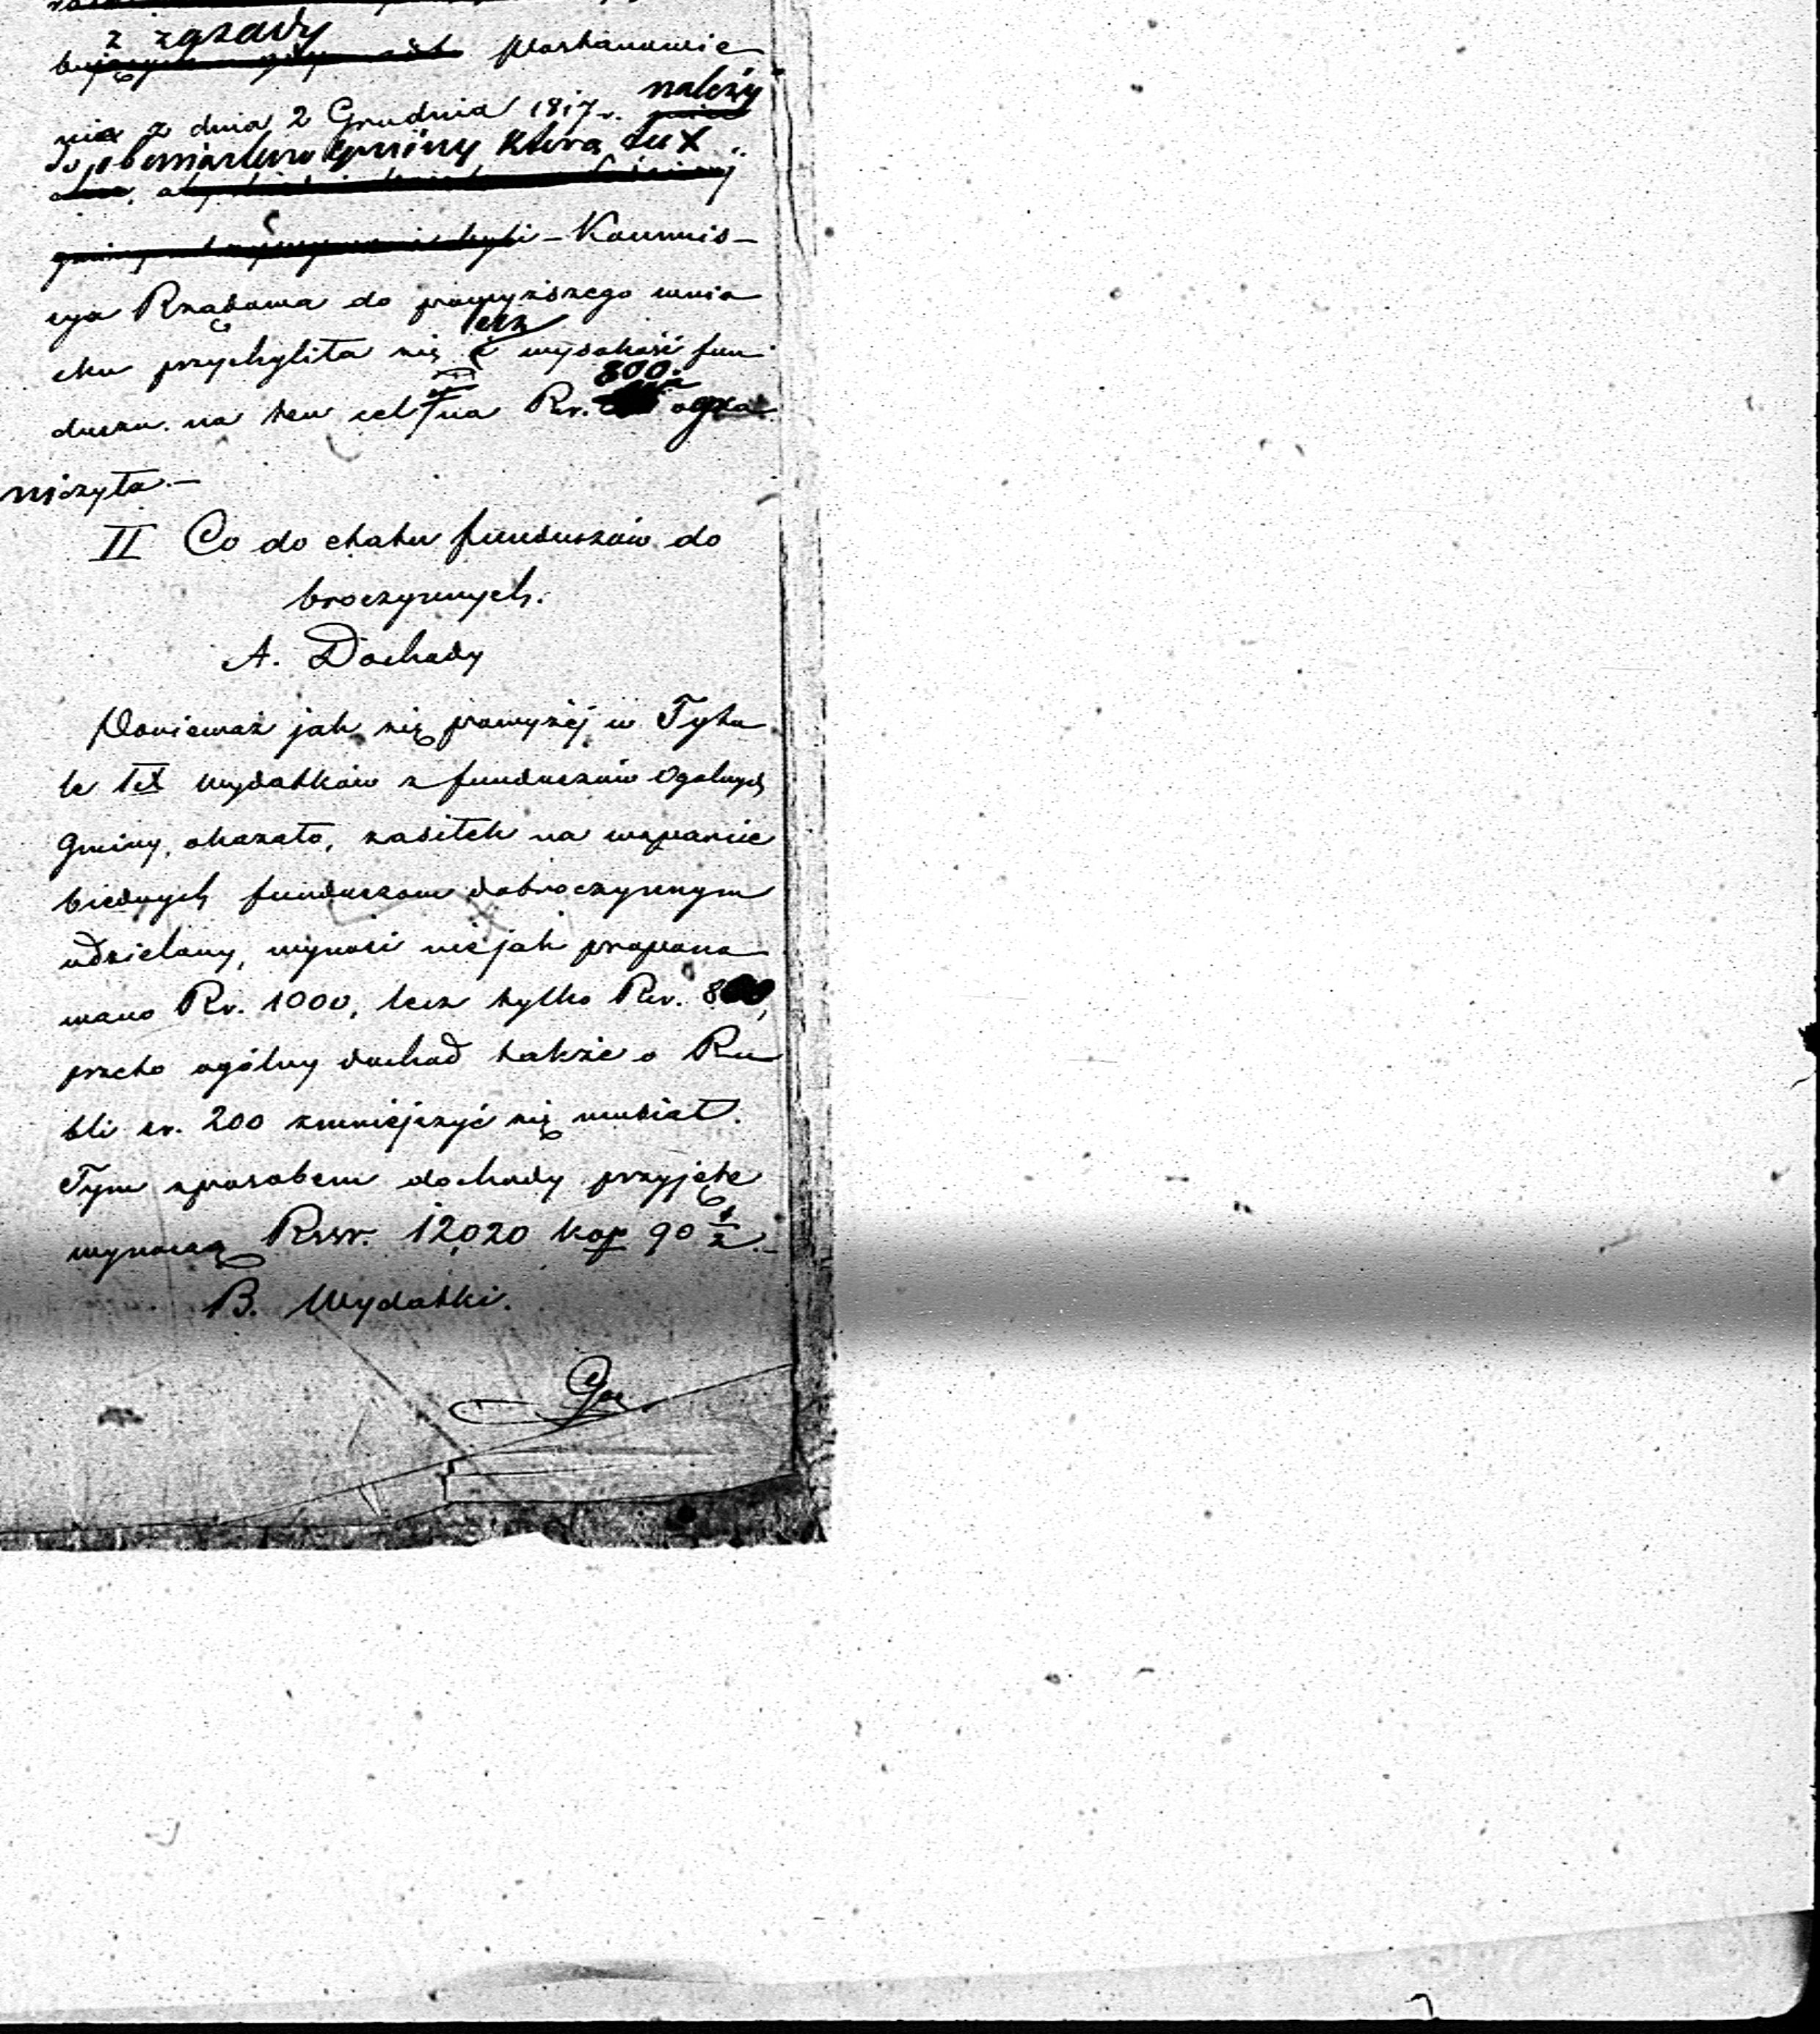 z zasady
Postanowie
nia z dnia 2 Grudnia 1817 r. należy
do obowiązków gminy, która też
Kommis-
sya Rządowa do powyższego wnio
sku przychyliła się lecz wysokość fun
duszu na ten cel na Rs. 800 ogra
niczyła.—
II Co do etatu funduszów do
broczynnych.
A. Dochody
Ponieważ jak się powyżej w Tytu
le wydatków z funduszów Ogólnych
Gminy, okazało, zasiłek na wsparcie
biednych funduszom dobroczynnym
udzielany, wynosi nie jak propono
wano Rs. 1000, lecz tylko Rs. 800,
przeto ogólny dochód także o Ru
bli sr. 200 zmniejszyć się musiał.
Tym sposobem dochody przyjęte
wynoszą Rssr. 12,020 kop 90 1/2.—
B. Wydatki.